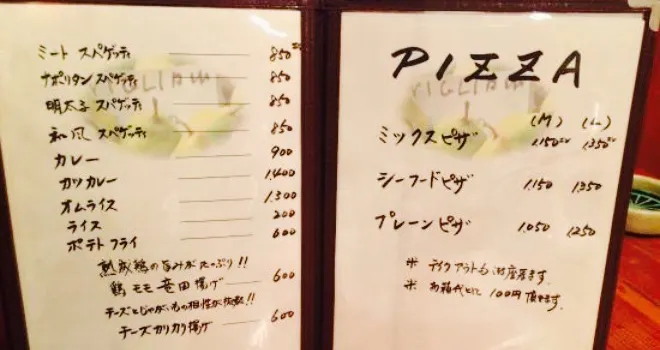 ミート スパゲッティ 850
ナポリタン スパゲッティ 850
明太子 スパゲッティ 850
和風 スパゲッティ 850
カレー 900
カツカレー 1,400
オムライス 1,300
ライス 200
ポテトフライ 600
熟成鶏の旨みがたっぷり!!
鶏モモ 竜田揚げ 600
チーズとじゃがいもの相性が抜群!!
チーズカリカリ揚げ 600
PIZZA
(M) (L)
ミックスピザ 1,150 1,350
シーフードピザ 1,150 1,350
プレーンピザ 1,050 1,250
※ テイクアウトも出来ます.
※ お箱代として 100円頂きます.